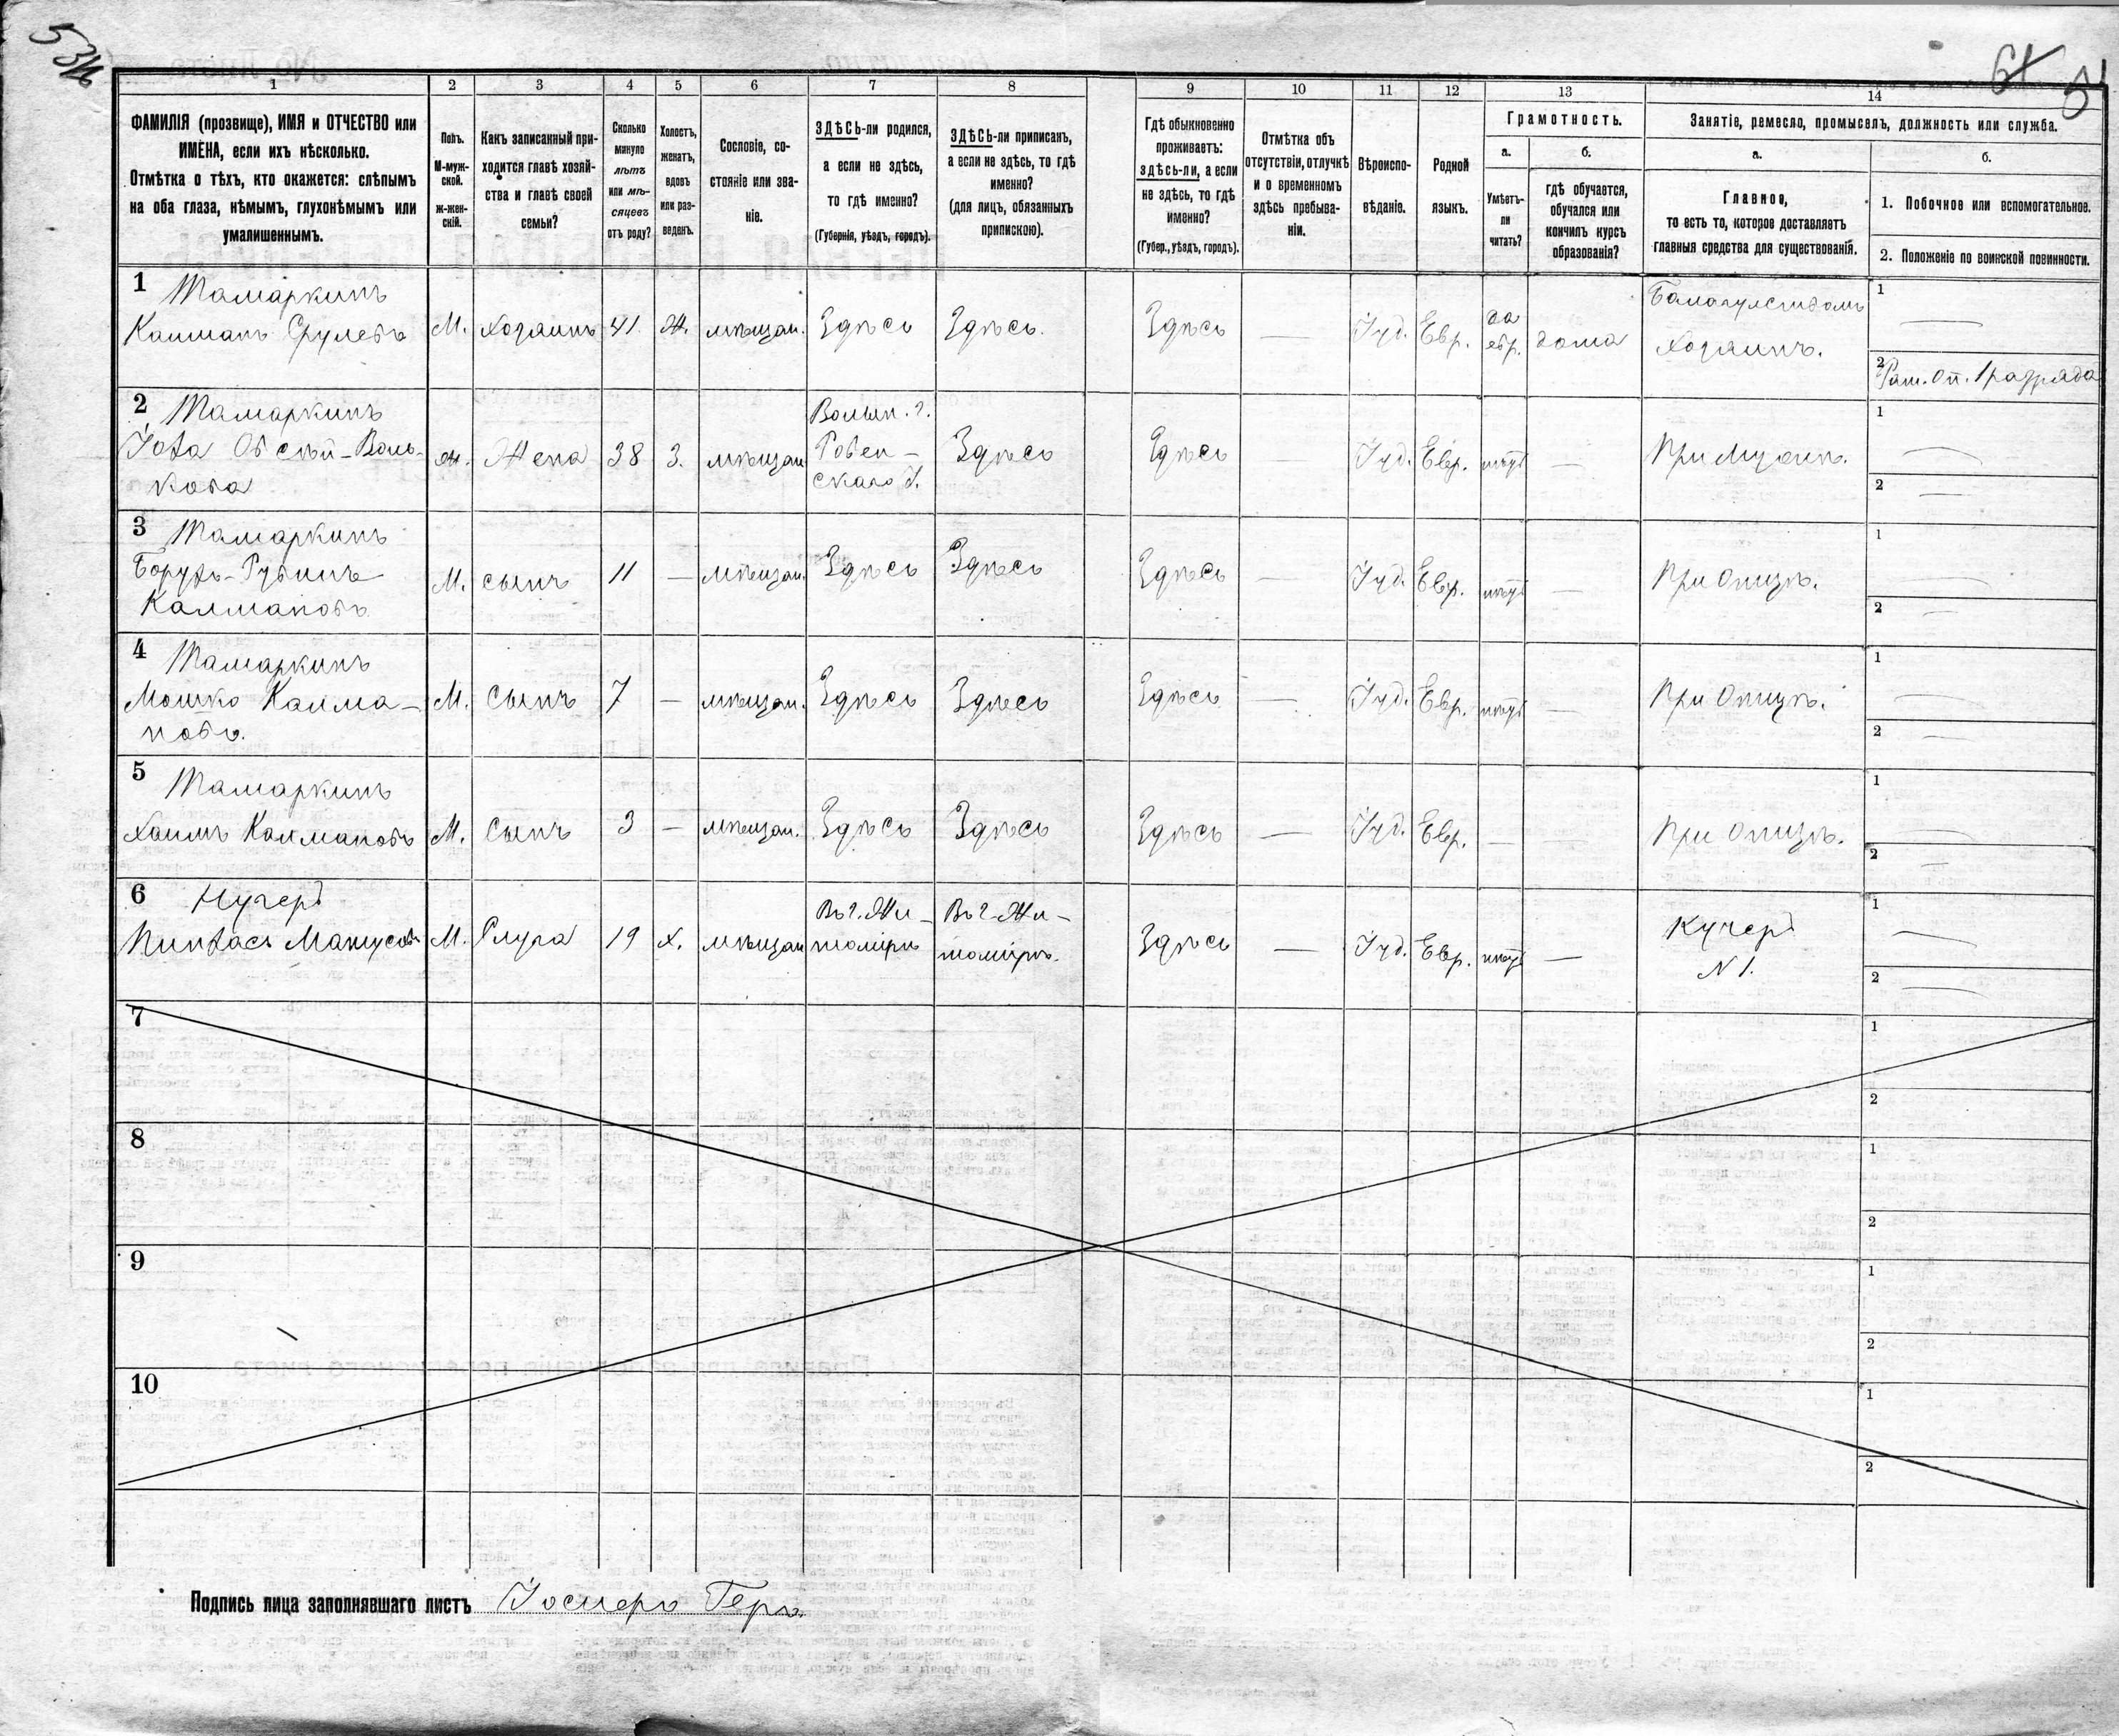 1
2
3
4
5
6
7
8
9
10
11
12
13
14
ФАМИЛІЯ (прозвище), ИМЯ и ОТЧЕСТВО или
ИМЕНА, если ихъ нѣсколько.
Отмѣтка о тѣхъ, кто окажется: слѣпымъ
на оба глаза, нѣмымъ, глухонѣмымъ или
умалишеннымъ.
Полъ.
М-муж-
ской.
ж-жен-
скій.
Какъ записанный при-
ходится главѣ хозяй-
ства и главѣ своей
семьи?
Сколько
минуло
лѣтъ
или мѣ-
сяцевъ
отъ роду?
Холостъ,
женатъ,
вдовъ
или раз-
веденъ.
Сословіе, со-
стояніе или зва-
ніе.
ЗДѢСЬ-ли родился,
а если не здѣсь,
то гдѣ именно?
(Губернія, уѣздъ, городъ).
ЗДѢСЬ-ли приписанъ,
а если не здѣсь, то гдѣ
именно?
(для лицъ, обязанныхъ
припискою).
Гдѣ обыкновенно
проживаетъ:
ЗДѢСЬ-ли, а если
не здѣсь, то гдѣ
именно?
(Губер., уѣздъ, городъ).
Отмѣтка объ
отсутствіи, отлучкѣ
и о временномъ
здѣсь пребыва-
ніи.
Вѣроиспо-
вѣданіе.
Родной
языкъ.
Грамотность.
а.
Умѣетъ-
ли
читать?
б.
гдѣ обучается,
обучался или
кончилъ курсъ
образованія?
Занятіе, ремесло, промыселъ, должность или служба.
а.
Главное,
то есть то, которое доставляетъ
главныя средства для существованія.
б.
1. Побочное или вспомогательное.
2. Положеніе по воинской повинности.
1 Тамаркинъ
Калманъ Срулевъ
М.
Хозяинъ
41.
Ж.
мѣщан.
Здѣсь
Здѣсь.
Здѣсь
—
Іуд.
Евр.
да
евр.
дома
Хозяинъ.
1 —
2 Рат. Оп. 1 разряда
2 Тамаркинъ
ж.
Жена
38
З.
мѣщан
Волын. г.
Ровен-
скаго У.
Здѣсь
Здѣсь
—
Іуд.
Евр.
нѣтъ
—
При Мужѣ.
1 —
2 —
3 Тамаркинъ
Борухъ-Рувинъ
Калмановъ
М.
сынъ
11
—
мѣщан.
Здѣсь
Здѣсь
Здѣсь
—
Іуд.
Евр.
нѣтъ
—
При Отцѣ.
1 —
2 —
4 Тамаркинъ
Мошко Калма-
новъ.
М.
Сынъ
7
—
мѣщан.
Здѣсь
Здѣсь
Здѣсь
—
Іуд.
Евр.
нѣтъ
—
При Отцѣ.
1 —
2 —
5 Тамаркинъ
Хаимъ Калмановъ
М.
Сынъ
3
—
мѣщан.
Здѣсь
Здѣсь
Здѣсь
—
Іуд.
Евр.
—
—
При Отцѣ.
1 —
2 —
6
Пинхасъ
М.
Слуга
19
Х.
мѣщан
Въ г. Жи-
томірѣ
Въ г. Жи-
томірѣ.
Здѣсь
—
Іуд.
Евр.
нѣтъ
—
Кучеръ
N 1.
1 —
2 —
7
1
2
8
1
2
9
1
2
10
1
2
Подпись лица заполнявшаго листъ